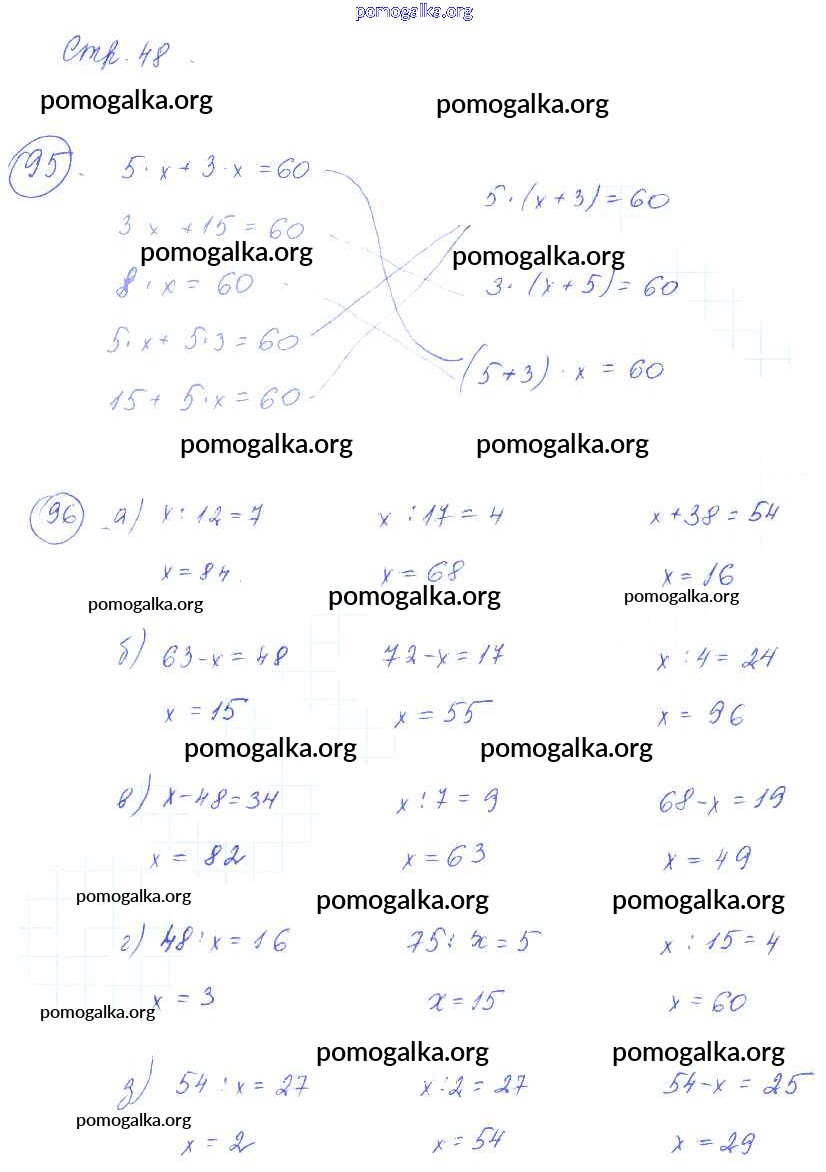 pomogalka.org
Стр. 48.
pomogalka.org pomogalka.org
95. 5·x + 3·x = 60
5·(x+3) = 60
3 x + 15 = 60
pomogalka.org pomogalka.org
8·x = 60
3·(x+5) = 60
5·x + 5·3 = 60
(5+3)·x = 60
15 + 5·x = 60
pomogalka.org pomogalka.org
96 а) x:12=7 x:17=4 x+38=54
x=84. x=68 x=16
pomogalka.org pomogalka.org pomogalka.org
б) 63-x=48 72-x=17 x:4=24
x=15 x=55 x=96
pomogalka.org pomogalka.org
в) x-48=34 x:7=9 68-x=19
x=82 x=63 x=49
pomogalka.org pomogalka.org pomogalka.org
г) 48:x=16 75:x=5 x:15=4
x=3 x=15 x=60
pomogalka.org
pomogalka.org pomogalka.org
д) 54:x=27 x:2=27 54-x=25
pomogalka.org
x=2 x=54 x=29